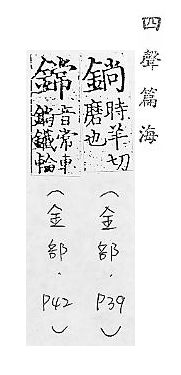 四聲篇海
鋿時羊切
磨也
（金部．P39）
鏛音常車
鏛鐵輪
（金部．P42）